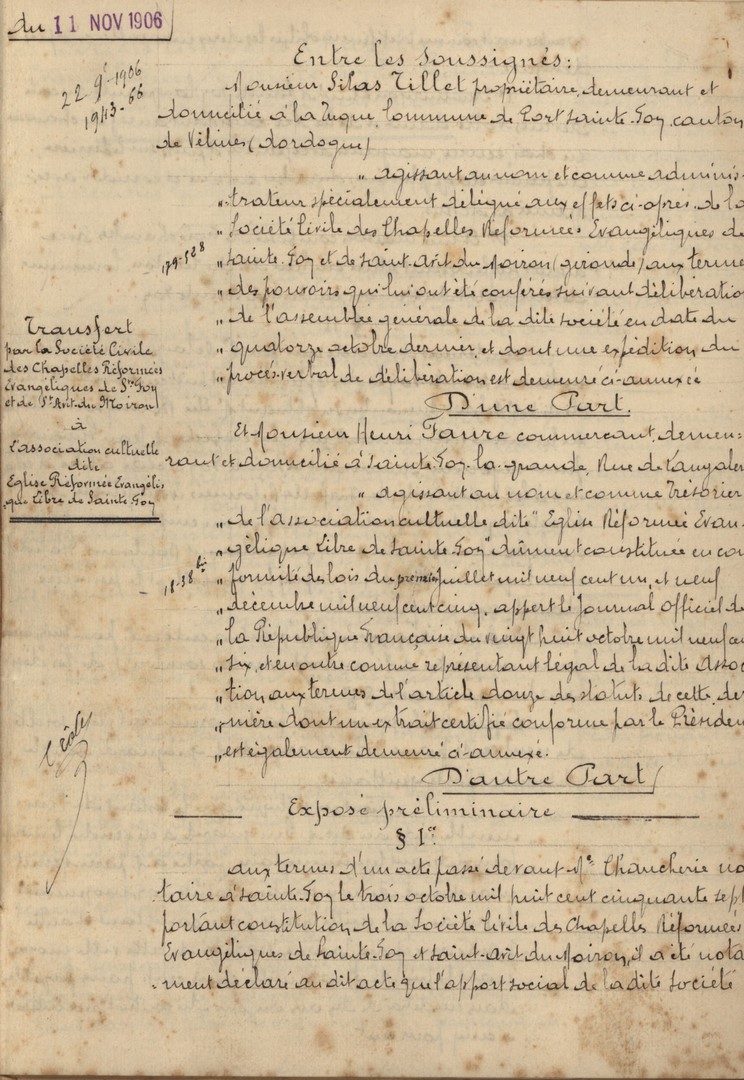 du 11 NOV 1906
22 9e 1906
1943-66
Entre les soussignés:
Monsieur Silas Tillet propriétaire, demeurant et
domicilié à la Rèque, Commune de Port Sainte-Foy, canton
de Vélines (dordogne)
" agissant au nom et comme adminis-
" trateur spécialement délégué aux effets ci-après, de la
" Société Civile des Chapelles Réformées Evangéliques de
179-528
" Sainte-Foy et de Saint-Avit du Moiron (gironde) aux terme
" des pouvoirs qui lui ont été conférés suivant délibératio
" de l'assemblée générale de la dite société en date du
" quatorze octobre dernier, et dont une expédition du
" procès-verbal de délibération est demeuré ci-annexée
D'une Part.
Transfert
par la Société Civile
des Chapelles Réformées
Evangéliques de Ste Foy
et de St Avit-du Moiron
à
L'association cultuelle
dite
Eglise Réformée Evangéli
que Libre de Sainte Foy
Et Monsieur Henri Faure commerçant, demeu-
rant et domicilié à Sainte-Foy-la-grande, Rue de
" agissant au nom et comme Trésorier
" de l'association cultuelle dite "Eglise Réformée Evan-
" gélique Libre de Sainte-Foy" dûment constituée en con
18-38
" formité des lois du premier Juillet mil neuf cent un, et neuf
" décembre mil neuf cent cinq, appert le Journal Officiel de
" la République Française du vingt huit octobre mil neuf ce
" six, et en outre comme représentant légal de la dite Assoc
" tion aux termes de l'article douze des statuts de cette der
" nière dont un extrait certifié conforme par le Présiden
" est également demeuré ci-annexé.
D'autre Part/
Exposé préliminaire
§ 1er
aux termes d'un acte passé devant Me Chaucherie no
taire à Sainte-Foy le trois octobre mil huit cent cinquante sept
portant constitution de la Société Civile des Chapelles Réformées
Evangéliques de Sainte-Foy et Saint-Avit du Moiron, il a été nota
ment déclaré au dit acte que l'apport social de la dite Société